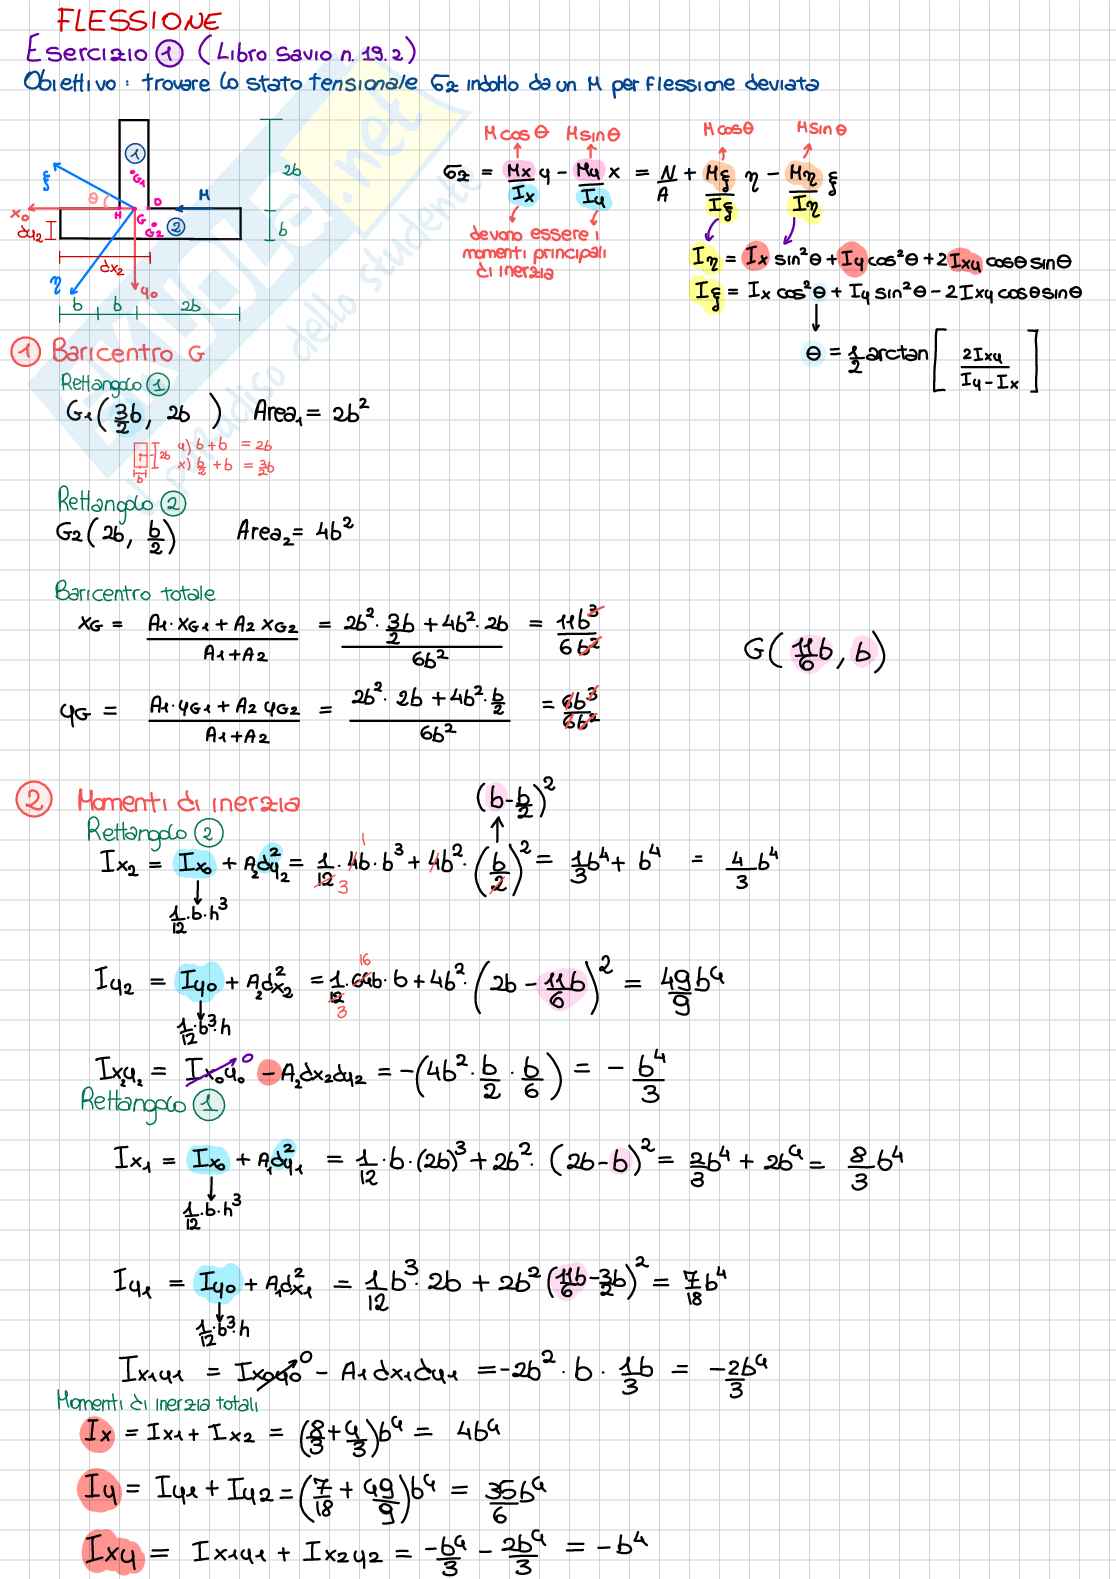 FLESSIONE
Esercizio ① (Libro Savio n. 19.2)
Obiettivo: trovare lo stato tensionale σz indotto da un M per flessione deviata
① G1 ξ θ M x0 H O G G2 ② dy2 dx2 η y0 b b 2b 2b b
M cos θ M sin θ M cos θ M sin θ
σz = Mx/Ix y - My/Iy x = N/A + Mξ/Iξ η - Mη/Iη ξ
devono essere i
momenti principali
di inerzia
Iη = Ix sin²θ + Iy cos²θ + 2Ixy cosθ sinθ
Iξ = Ix cos²θ + Iy sin²θ - 2Ixy cosθ sinθ
θ = 1/2 arctan [2Ixy / Iy - Ix]
① Baricentro G
Rettangolo ①
G1 (3/2 b, 2b) Area1 = 2b²
b 2b y) b + b = 2b
x) b/2 + b = 3/2 b
Rettangolo ②
G2 (2b, b/2) Area2 = 4b²
Baricentro totale
xG = A1·xG1 + A2 xG2 / A1+A2 = 2b²·3/2 b + 4b²·2b / 6b² = 11b³/6b²
G(11/6 b, b)
yG = A1·yG1 + A2 yG2 / A1+A2 = 2b²·2b + 4b²·b/2 / 6b² = 6b³/6b²
② Momenti di inerzia
(b - b/2)²
Rettangolo ②
Ix2 = Ix0 + A2 dy2² = 1/12 · 4b · b³ + 4b² · (b/2)² = 1/3 b⁴ + b⁴ = 4/3 b⁴
1 3
1/12 · b · h³
Iy2 = Iy0 + A2 dx2² = 1/12 · 64b · b + 4b² · (2b - 11/6 b)² = 49/9 b⁴
16 3
1/12 · b³ · h
Ix2y2 = Ix0y0 0 - A2 dx2 dy2 = -(4b² · b/2 · b/6) = - b⁴/3
Rettangolo ①
Ix1 = Ix0 + A1 dy1² = 1/12 · b · (2b)³ + 2b² · (2b - b)² = 2/3 b⁴ + 2b⁴ = 8/3 b⁴
1/12 · b · h³
Iy1 = Iy0 + A1 dx1² = 1/12 b³ · 2b + 2b² (11/6 b - 3/2 b)² = 7/18 b⁴
1/12 · b³ · h
Ix1y1 = Ix0y0 0 - A1 dx1 dy1 = -2b² · b · 1/3 b = -2/3 b⁴
Momenti di inerzia totali
Ix = Ix1 + Ix2 = (8/3 + 4/3) b⁴ = 4b⁴
Iy = Iy1 + Iy2 = (7/18 + 49/9) b⁴ = 35/6 b⁴
Ixy = Ix1y1 + Ix2y2 = -b⁴/3 - 2b⁴/3 = -b⁴